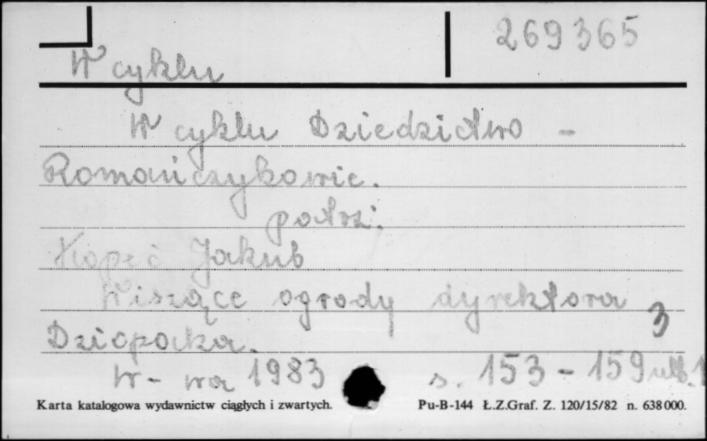 269365
W cyklu
W cyklu Dziedzictwo -
Romańczykowie.
patrz.
Kopeć Jakub
Wiszące ogrody dyrektora
3
Dziopaka.
W-wa 1983 s. 153-159
Karta katalogowa wydawnictw ciągłych i zwartych. Pu-B-144 Ł.Z.Graf. Z. 120/15/82 n. 638000.